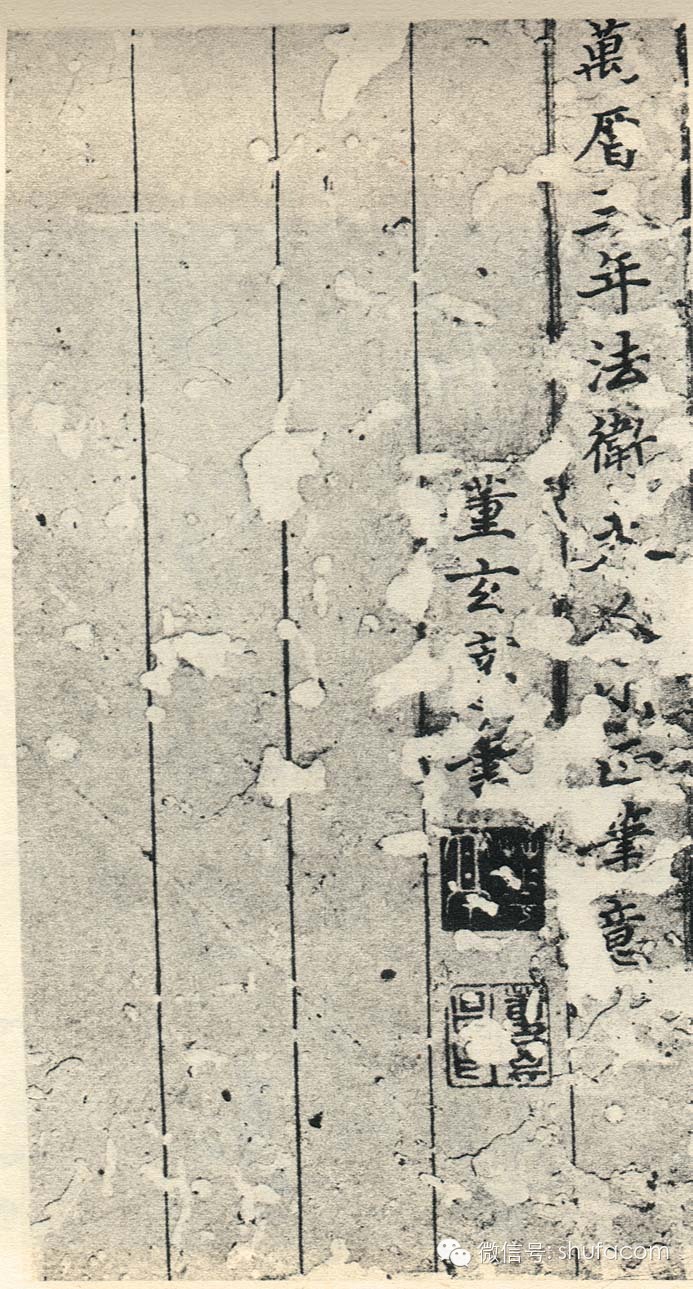 萬曆二年法衛夫人正筆意
董玄宰筆
微信号: shufacom